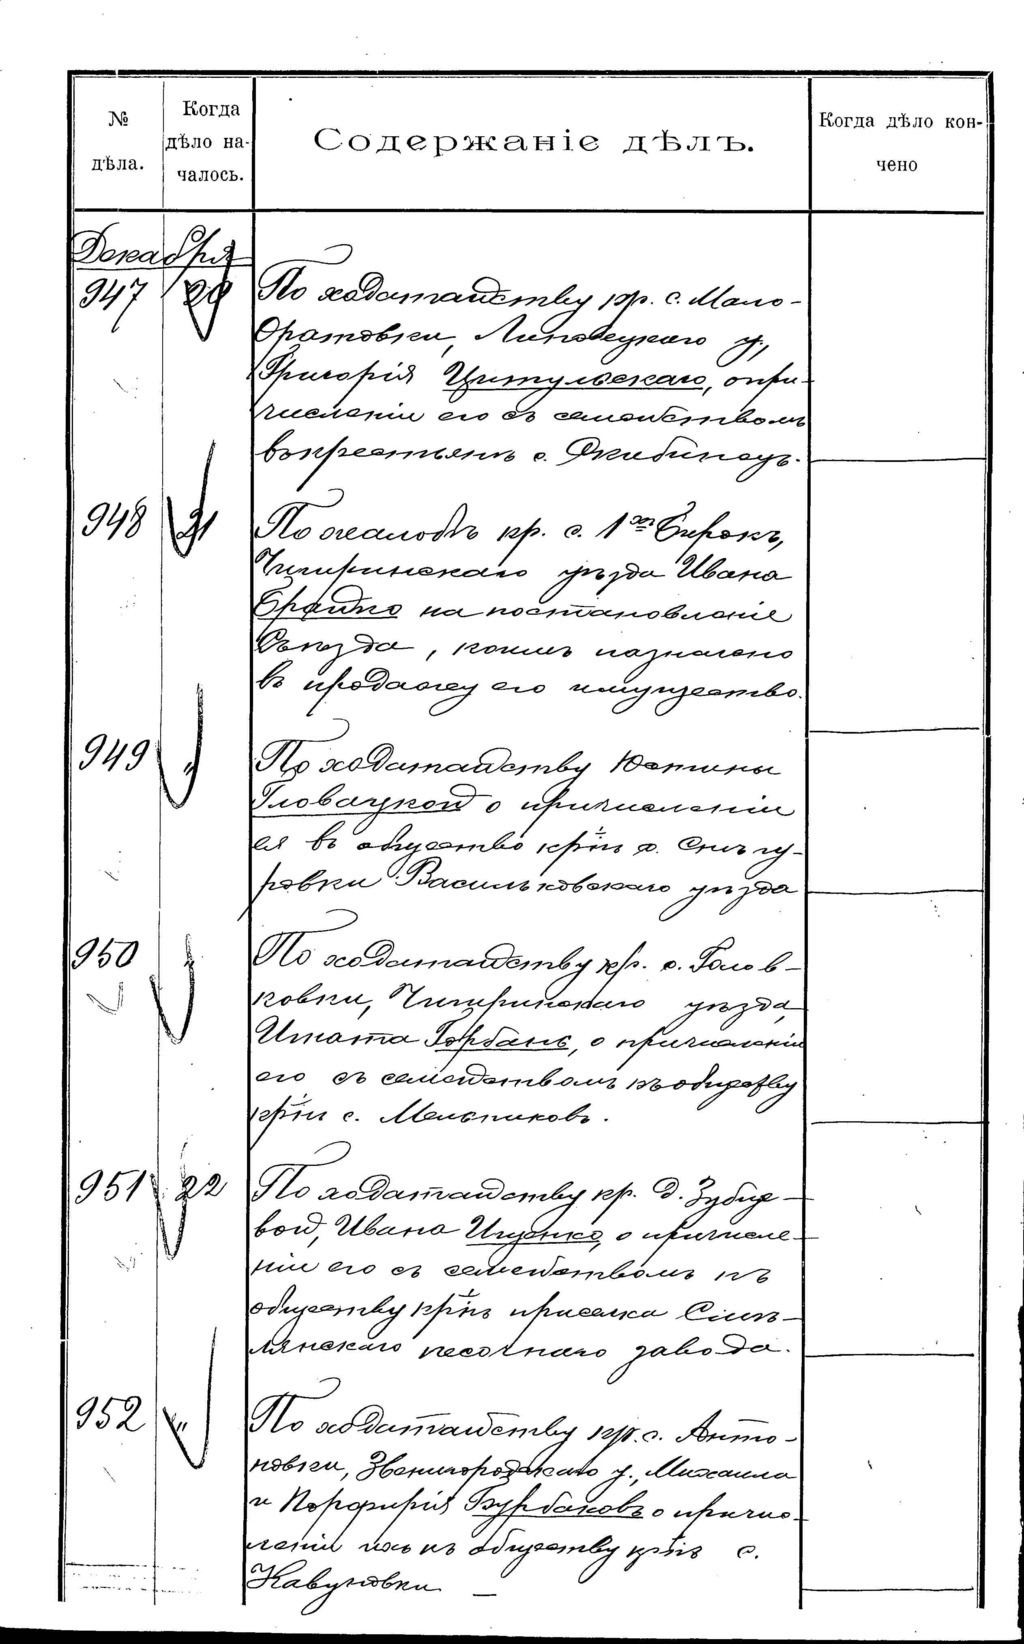 № дѣла.
Когда дѣло на-
чалось.
Содержаніе дѣлъ.
Когда дѣло кон-
чено
Декабря
947 20 По ходатайству кр. с. Мало-
Оратовки, Липовецкаго у.,
Григорія Цитульскаго, о при-
численіи его съ семействомъ
въ крестьянъ с. Скибинецъ.
948 21 По жалобѣ кр. с. 1хъ Бирокъ,
Чигиринскаго уѣзда Ивана
на постановленіе
Съѣзда, коимъ назначено
въ продажу его имущество.
949 " По ходатайству Юстины
Гловацкой о причисленіи
ея въ общество крнъ с. Снѣгу-
ровки Васильковскаго уѣзда
950 " По ходатайству кр. с. Голов-
ковки, Чигиринскаго уѣзда,
Игната Горбань, о причисленіи
его съ семействомъ къ обществу
крнъ с. Мельниковъ.
951 22 По ходатайству кр. д. Зубре-
вой, Ивана Ищенко, о причисле-
ніи его съ семействомъ къ
обществу крнъ приселка Смѣ-
лянскаго песочнаго завода.
952 " По ходатайству кр. с. Анто-
новки, Звенигородскаго у., Михаила
и Порфирія Бурбаковъ о причис-
леніи ихъ къ обществу крнъ с.
Кавуновки